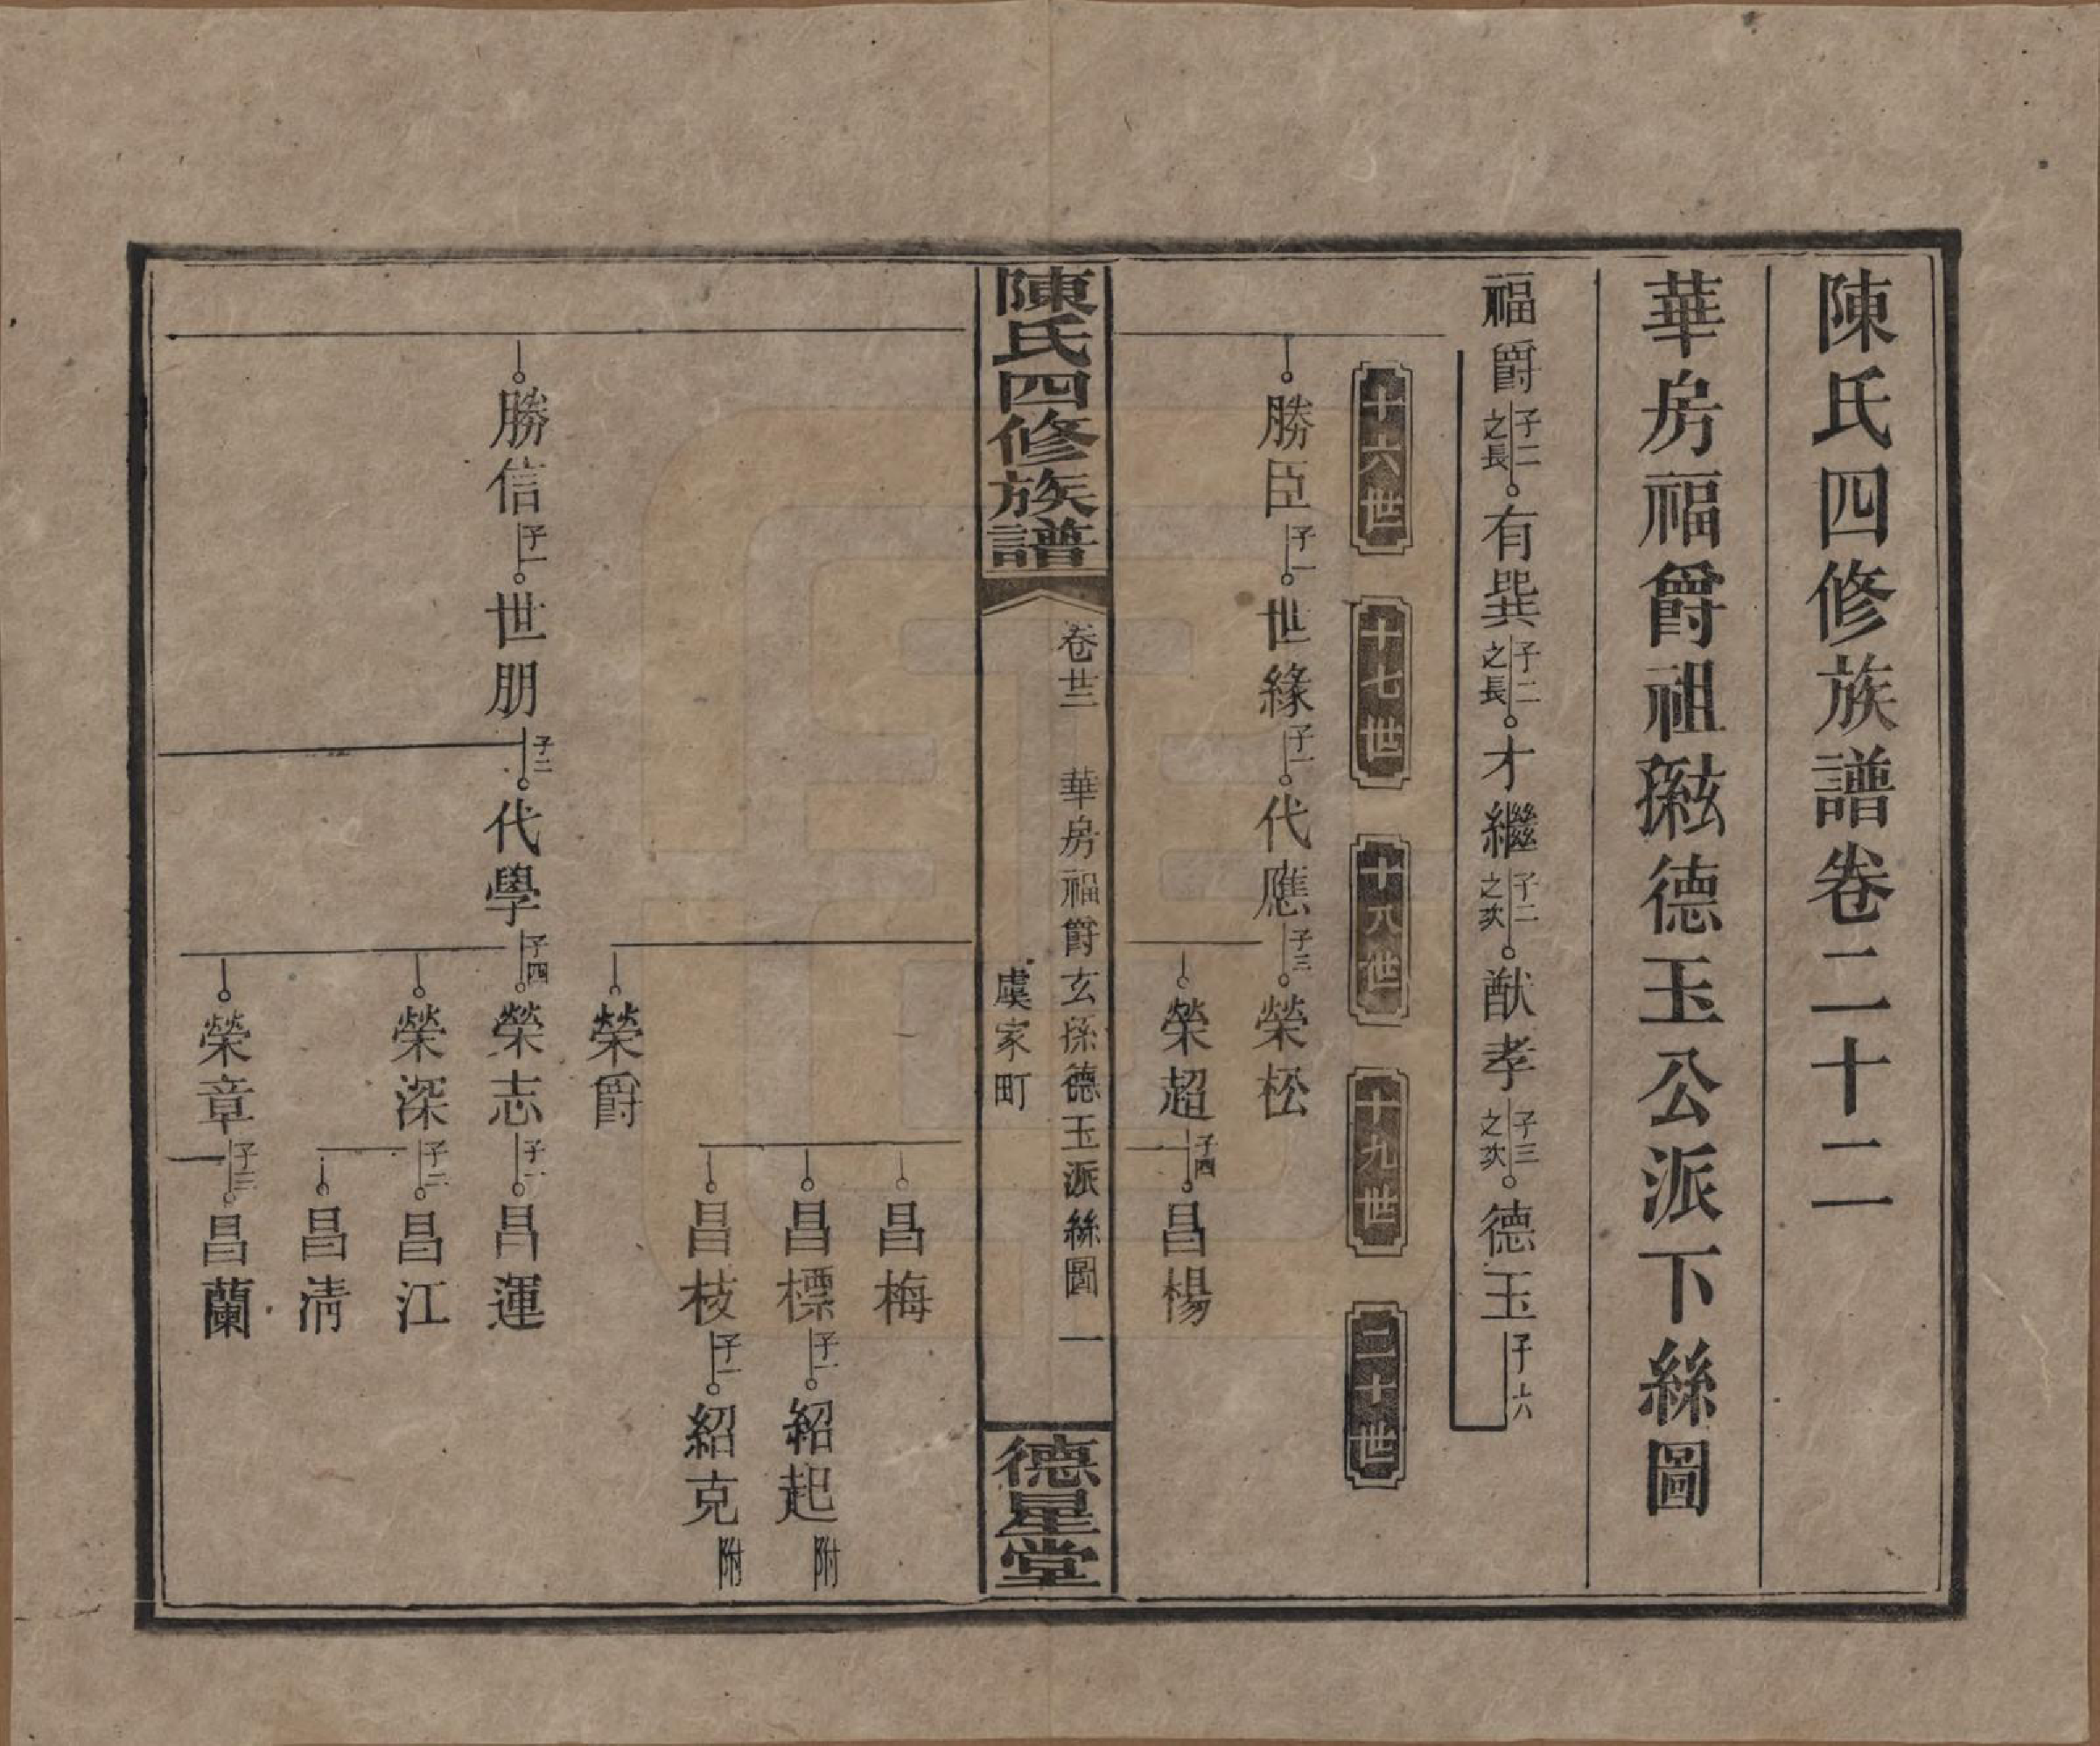 陳氏四修族譜卷二十二
華房福爵祖玄孫德玉公派下絲圖
福爵子二之長有巽子二之長才繼子二之次猷孝子三之次德玉子六
十六世
十七世
十八世
十九世
二十世
勝臣子一世緣子一代應子三榮松
榮超子四昌楊
陳氏四修族譜
卷廿二 華房福爵玄孫德玉派絲圖 一
虞家町
德星堂
昌梅
昌標子一紹起附
昌枝子一紹克附
榮爵
勝信子一世朋子二代學子四榮志子一昌運
榮深子二昌江
昌清
榮章子三昌蘭